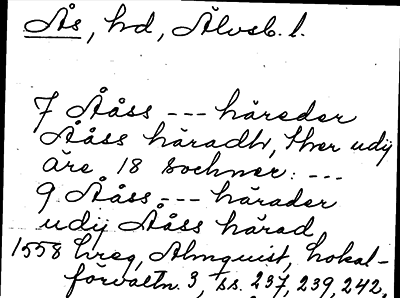 Ås, hd, Älvsb. l.
7 Ååss --- häreder
Ååss häradh, ther udij
äre 18 sochner: ---
9 Ååss --- härader
udij Ååss härad
1558 hreg, Almquist, Lokal-
förvaltn. 3, ss. 237, 239, 242,